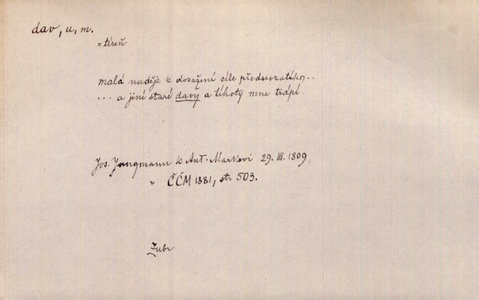 dav, u, m.
= tíseň
malá naděje k dosažení cíle předsevzatého..
... a jiné staré davy a těhoty mne trápí.
Jos. Jungmann k Ant. Markovi 29. III. 1809,
v ČČM 1881, str. 503.
Zubr